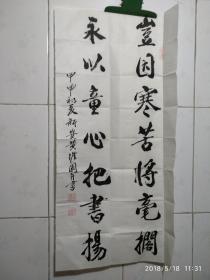 豈因寒苦將毫擱
永以童心把書揚
甲申初夏
2018/5/18 11:31